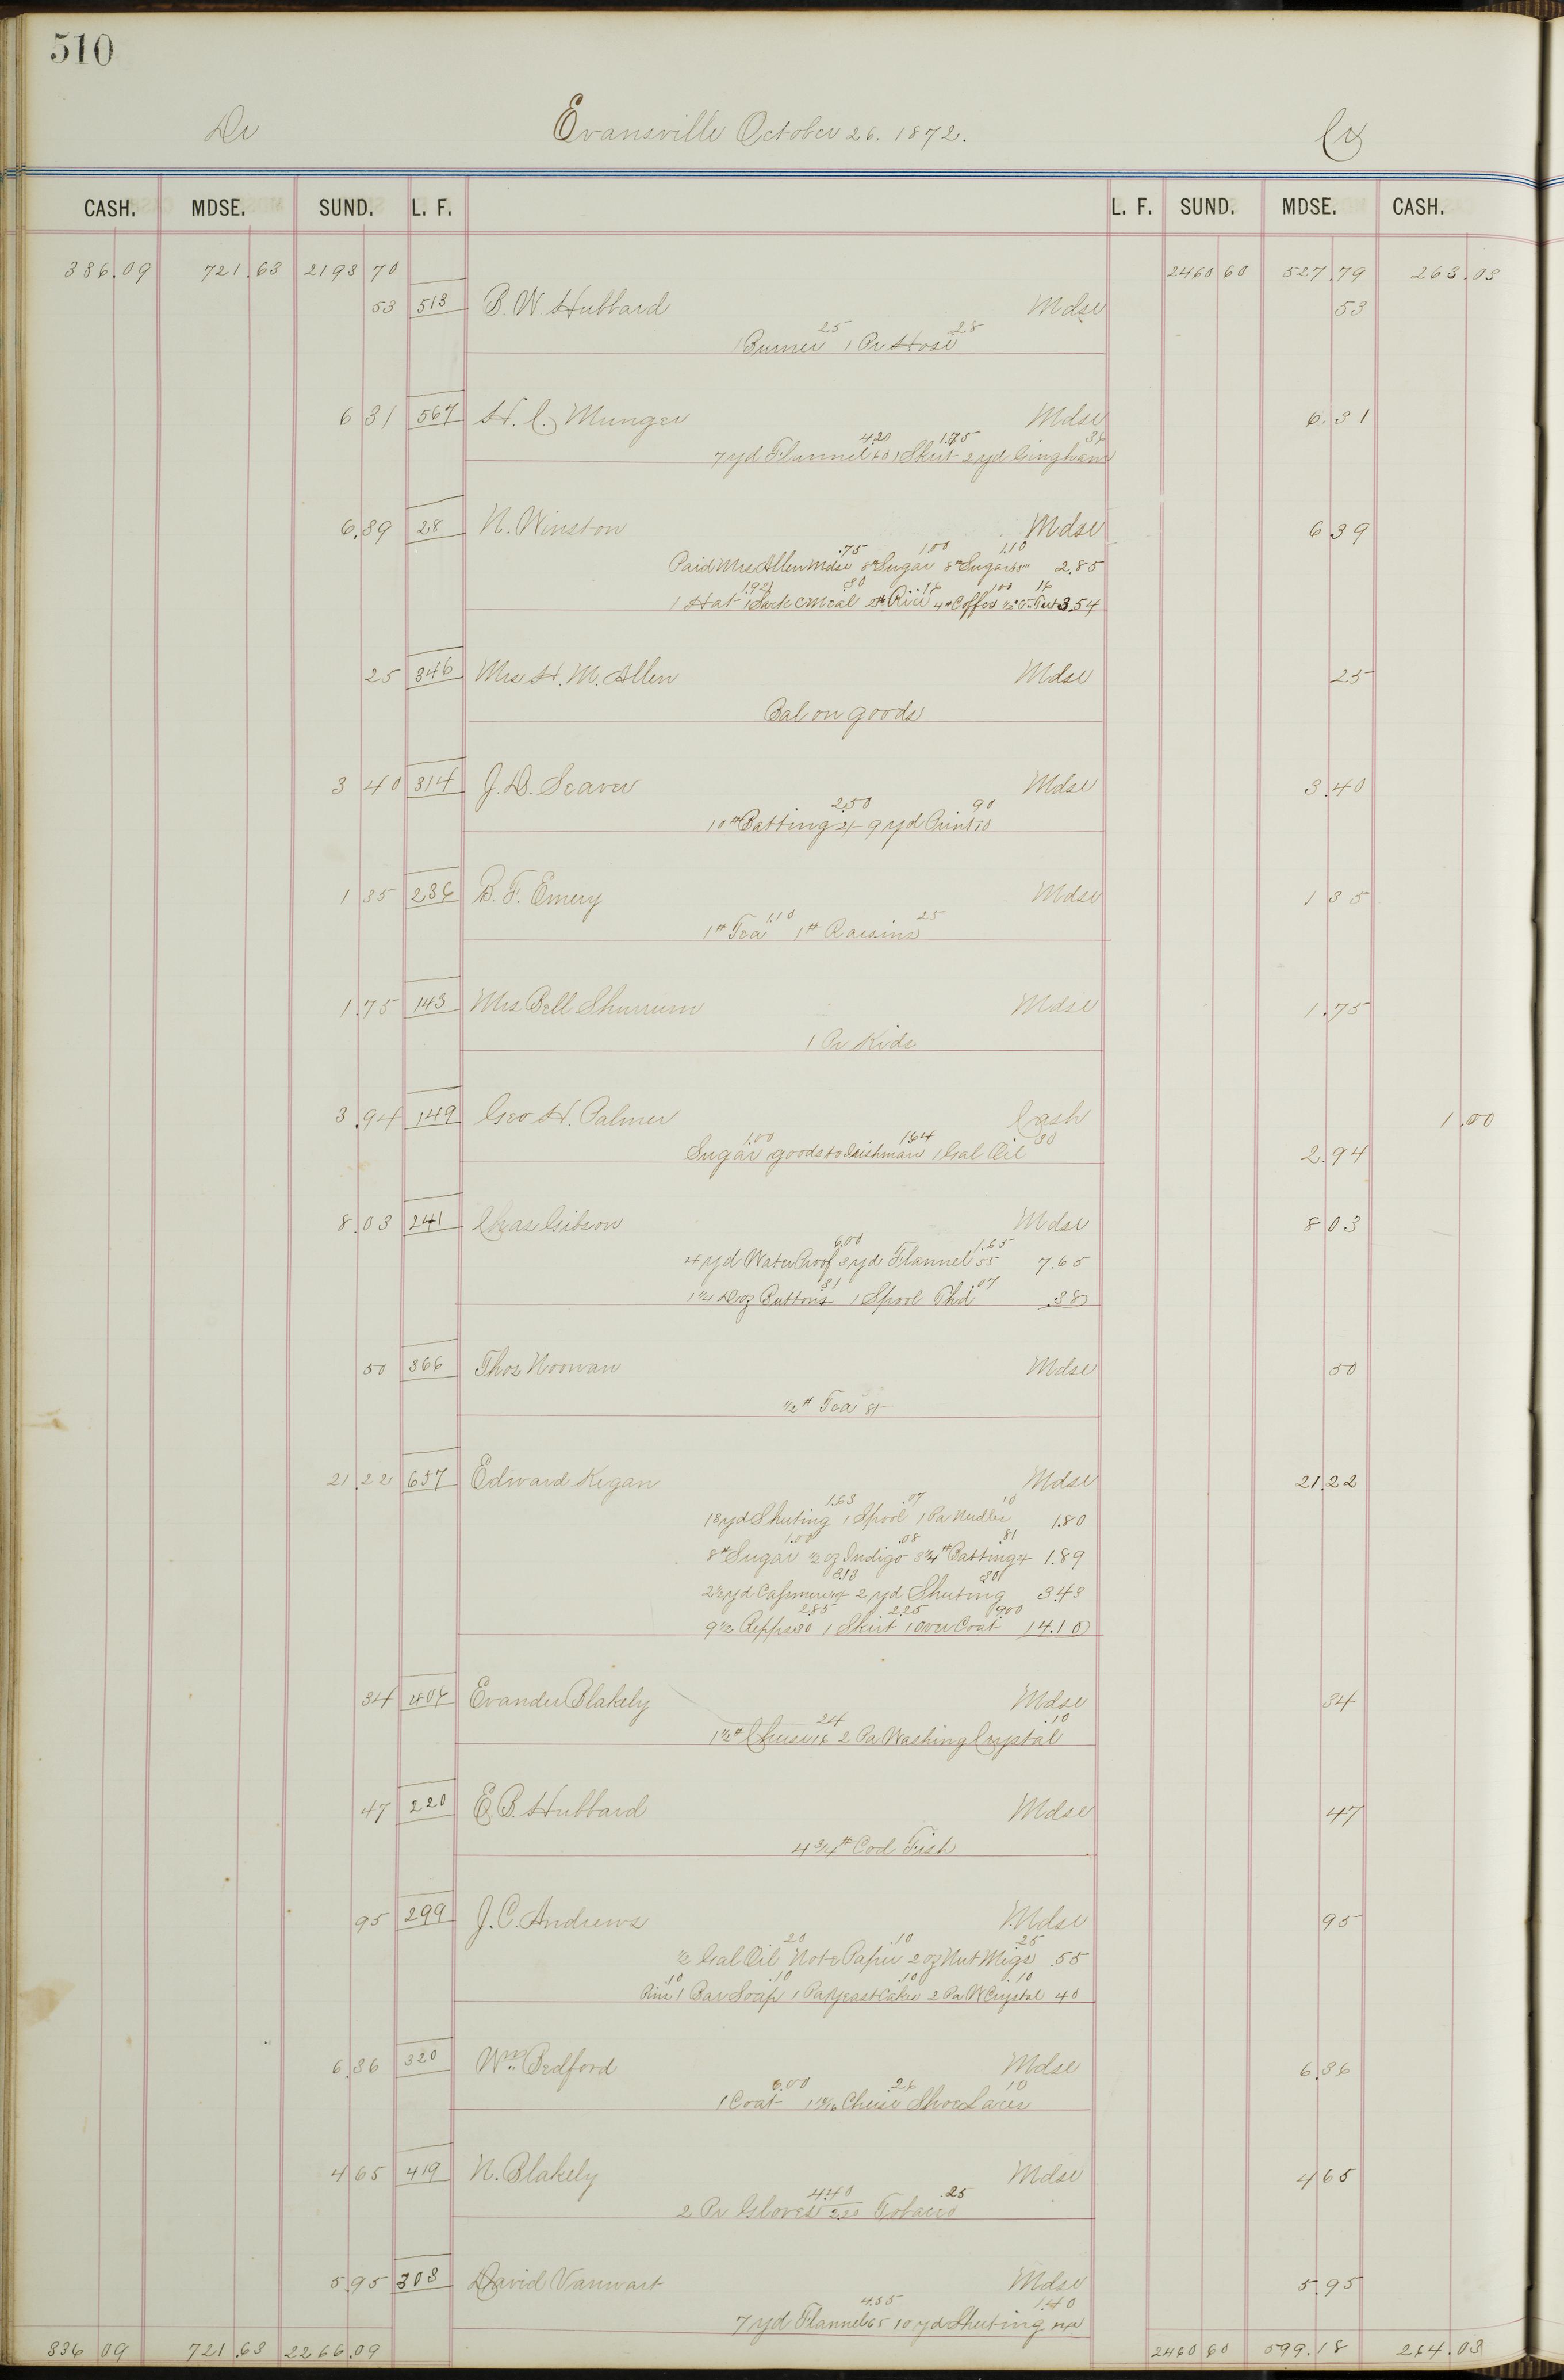 510
Dr Evansville October 26. 1872. Cr
CASH. MDSE. SUND. L. F. L. F. SUND. MDSE. CASH.
336.09 721.63 2193 70 2460 60 527.79 263.03
53 513 B. W. Hubbard Mdse 53
25 28
1 Burner 1 Pr Hose
6 31 567 H. C. Munger Mdse 6.31
4.20 1.75 36
7 yd Flannel 60 1 Skirt 2 yd Gingham
6.39 28 N. Winston Mdse 6 39
.75 1.00 1.10
Paid Mrs Allen Mdse 8# Sugar 8# Sugar 2.85
30 1.00 16
1 Hat 1 Sack C Meal Rice 4# Coffee 3.54
25 346 Mrs H. M. Allen Mdse 25
Bal on goods
3 40 314 J. D. Seaver Mdse 3.40
2.50 90
10# Batting 2/- 9 yd Print 10
1 35 236 B. F. Emery Mdse 1 35
1.10 25
1# Tea 1# Raisins
1.75 143 Mrs Bell Shurrum Mdse 1.75
1 Pr Kids
3.94 149 Geo H. Palmer Cash 1.00
1.00 1.64 30
Sugar goods to Irishman 1 Gal Oil 2.94
8.03 241 Chas Gibson Mdse 8 03
6.00 1.65
4 yd Water Proof 3 yd Flannel 55 7.65
31 07
1 1/4 Doz Buttons 1 Spool Thd .38
50 366 Thos Noonan Mdse 50
1/2# Tea 8/-
21.22 657 Edward Kegan Mdse 21.22
1.63 .07 10
13 yd Sheeting 1 Spool 1 Pa Needles 1.80
1.00 .08 81
8# Sugar 1/2 oz Indigo 3 1/4# Batting 2/- 1.89
3.13 30
2 1/2 yd Cassmere 10/- 2 yd Sheeting 3.43
2.85 2.25 9.00
9 1/2 Repps 30 1 Skirt 1 Over Coat 14.10
34 406 Evander Blakely Mdse 34
24 .10
1 1/2# Cheese 16 2 Pa Washing Crystal
47 220 E. B. Hubbard Mdse 47
4 3/4# Cod Fish
95 299 J. C. Andrews Mdse 95
20 .10 25
1/2 Gal Oil Note Paper 2 oz Nut Migs .55
.10 .10 .10 .10
Pins 1 Bar Soap 1 Pa Yeast Cakes 2 Pa W Crystal 40
6.36 320 Wm Bedford Mdse 6.36
6.00 .26 10
1 Coat Cheese Shoe Laces
4 65 419 N. Blakely Mdse 4 65
4.40 .25
2 Pr Gloves 2.20 Tobacco
5.95 303 David Vanwart Mdse 5.95
4.55 1.40
7 yd Flannel 65 10 yd Sheeting
336 09 721.63 2266.09 2460 60 599.18 264.03